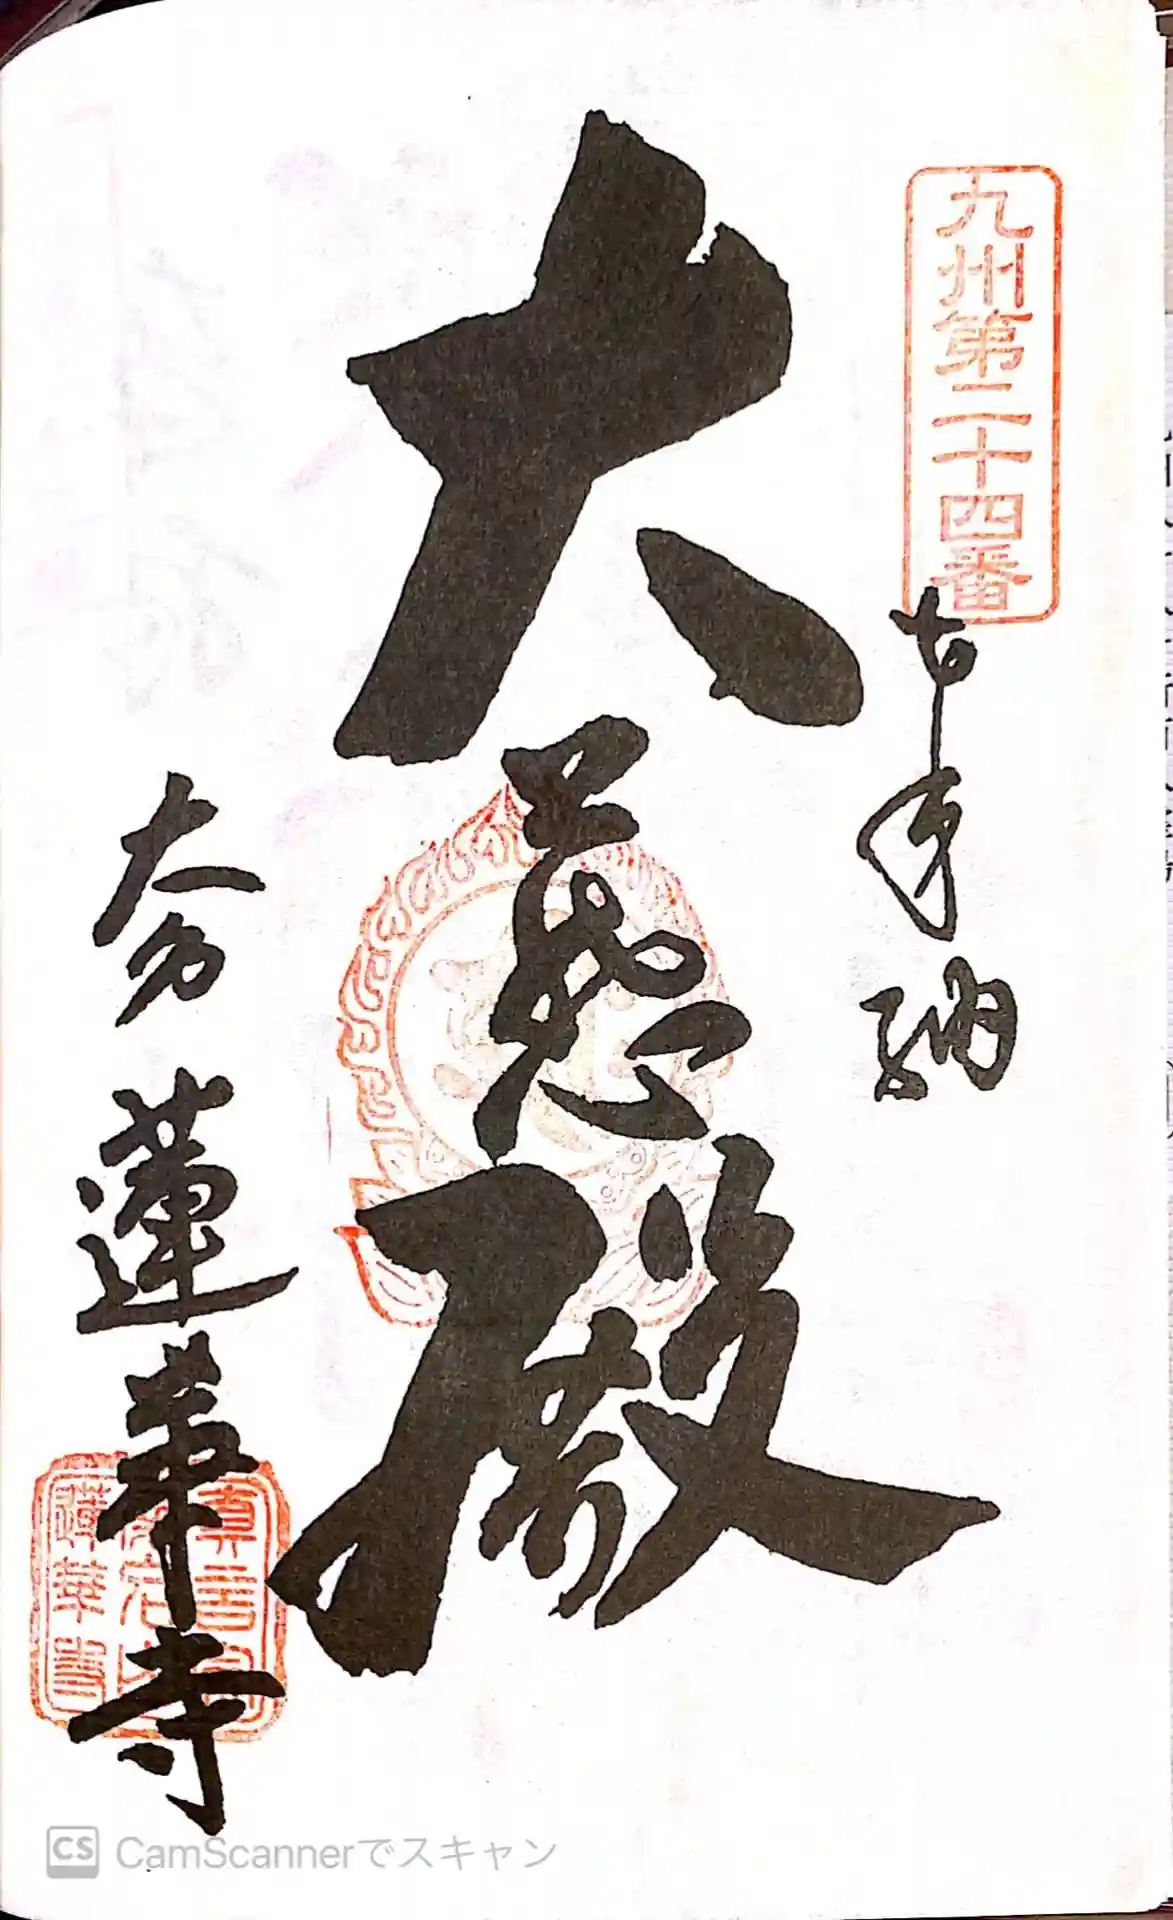 九州第二十四番
奉納
大悲殿
大分
蓮華寺
CS CamScannerでスキャン